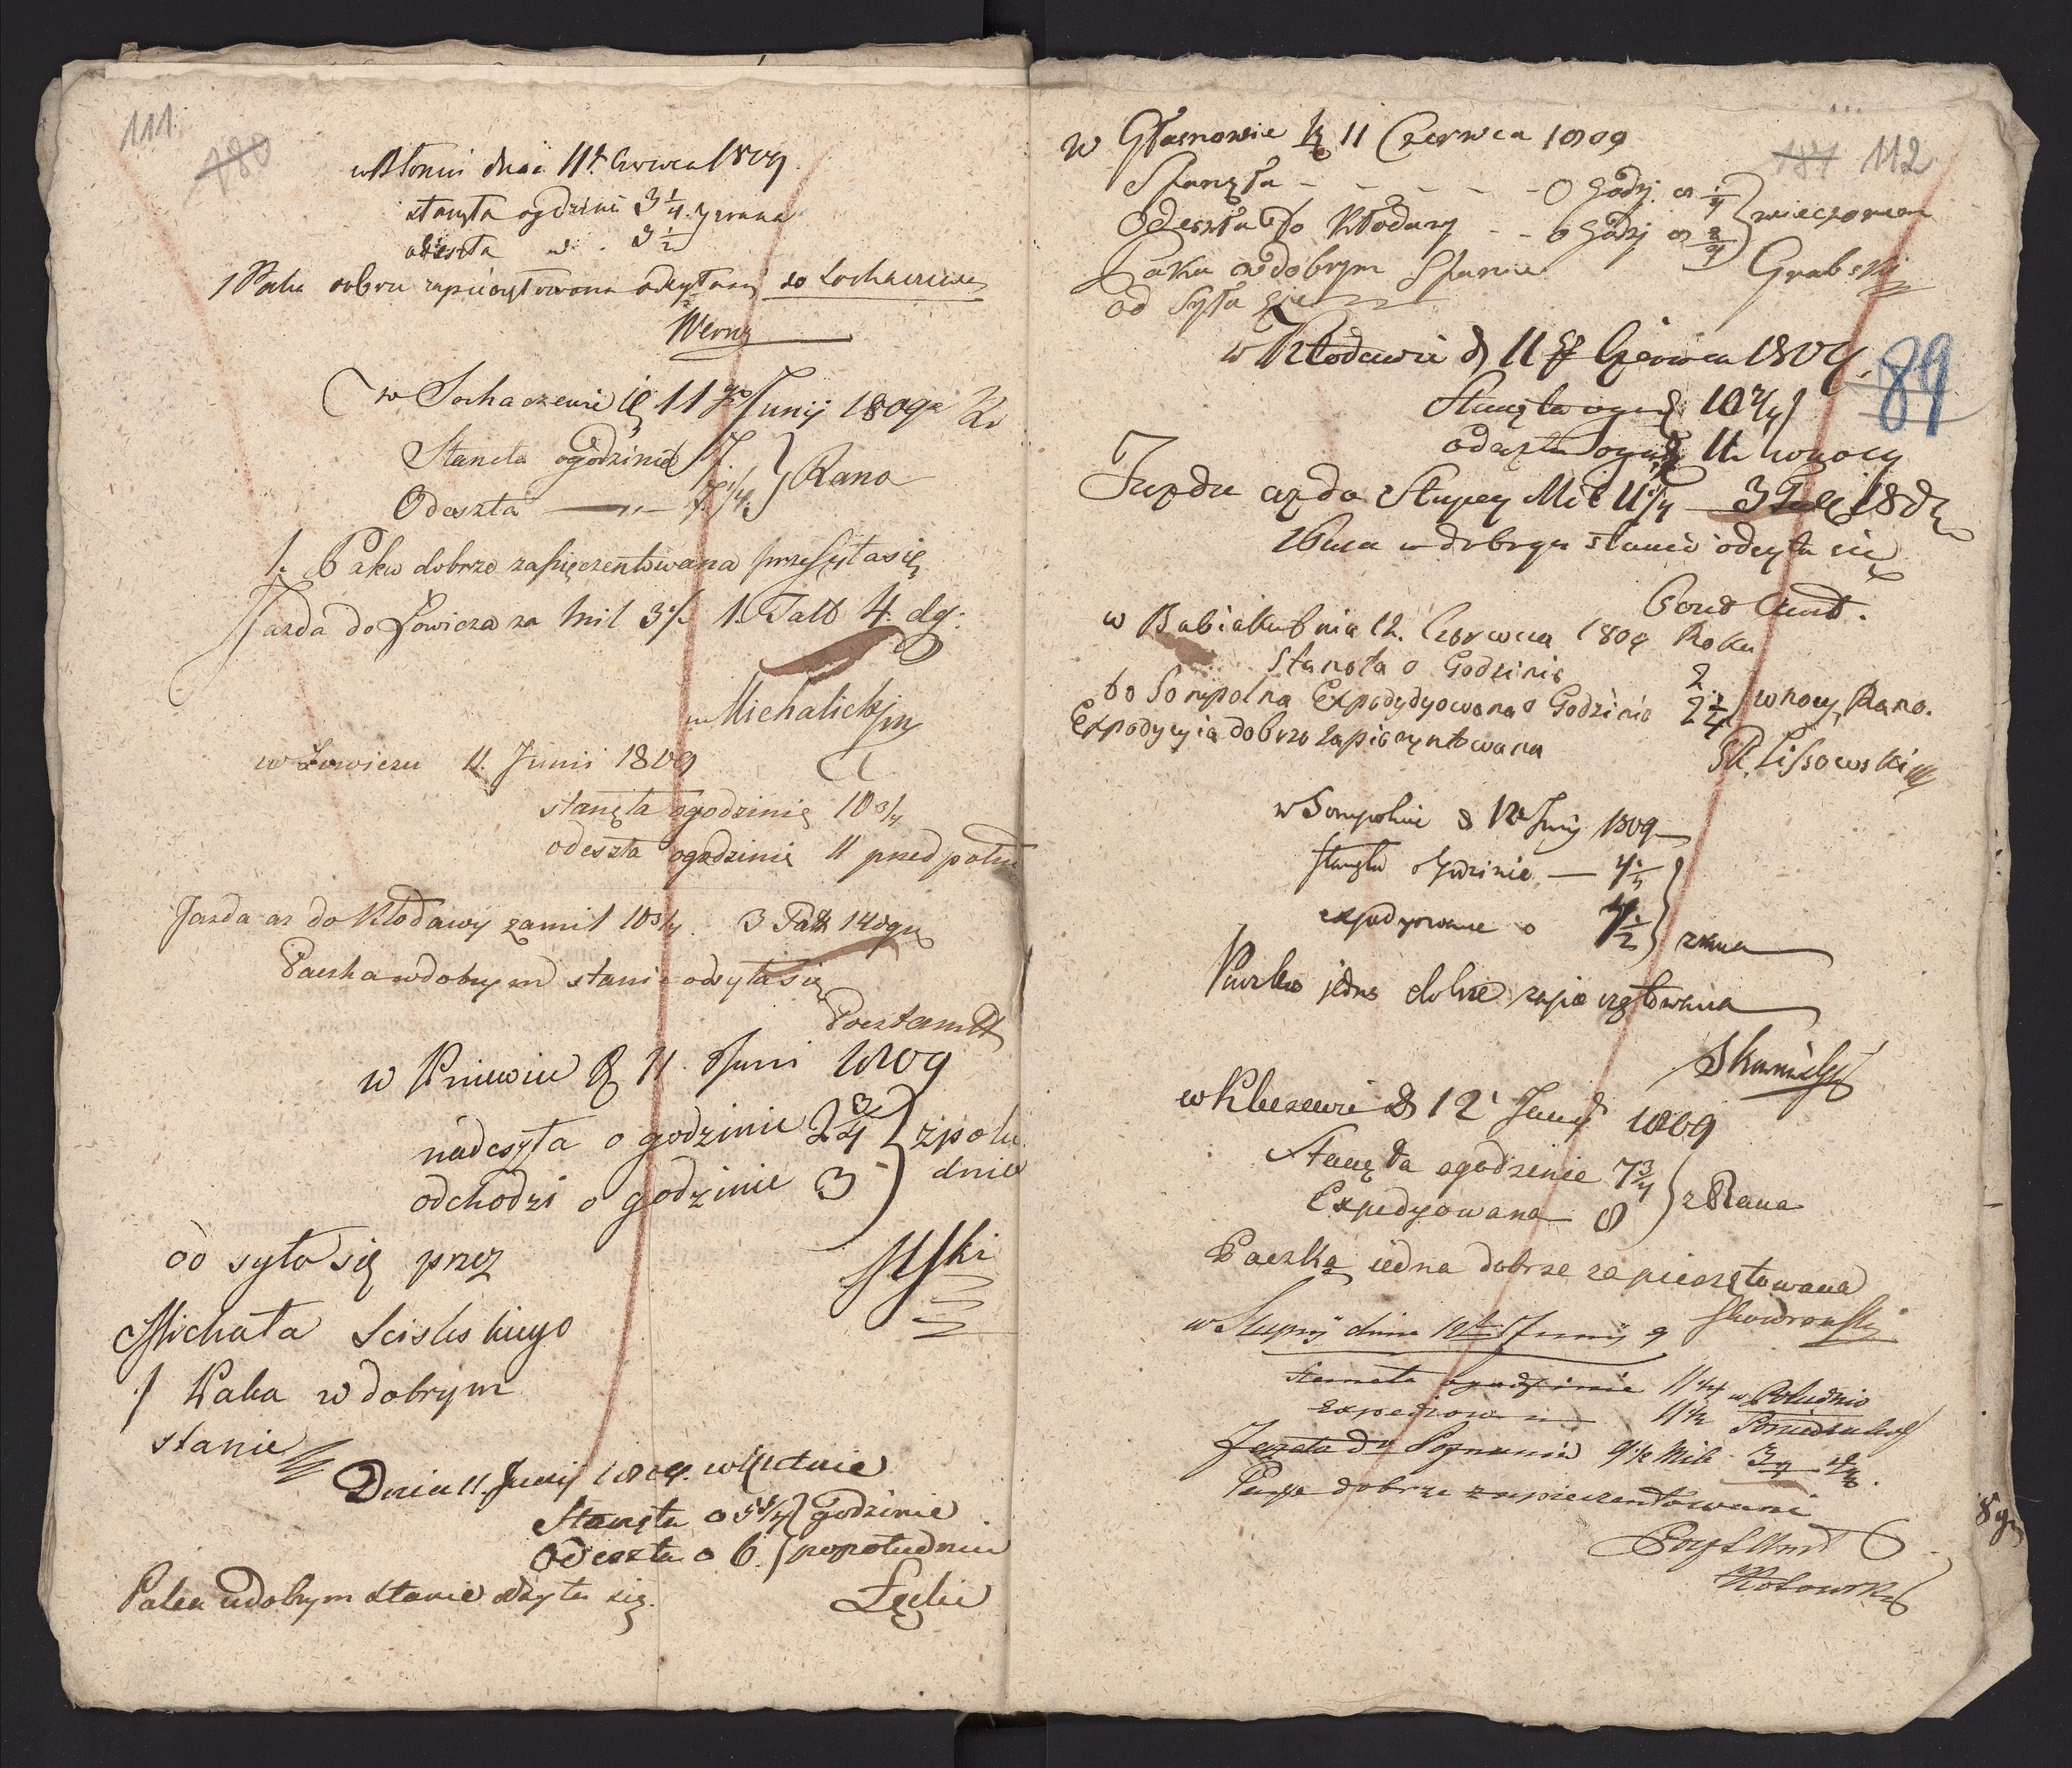 111.
180
w Błoniu dnia 11t. Czerwca 1809
stanęła o godzini 3 1/4 z rana
odeszła d. 3 1/2
1 Paka dobrze zapieczętowana odsyła się do Sochaczewa
Werny
w Sochaczewie d 11go Junij 1809 Ro
Staneła o godzinie 7.
Odeszła —„— 7 1/4 } Rano
1. Paka dobrze zapieczentowana przesyła się
Jazda do Łowicza za mil 3 1/2 1. Tall 4. dg:
Michalickj
w Łowiczu 11. Junii 1809
stanęła o godzinie 10 3/4
odeszła o godzinie 11 przed połud
Jazda az do Kłodawy za mil 10 3/4. 3 Tall 14 dgr
Paczka w dobrym stanie odsyła się
Pocztamt
w Pniewie d 11. Juni 1809
nadeszła o godzinie 2 3/4 } z połu
odchodzi o godzinie 3 } dnia
odsyło się przez
Michała Scislskiego
1 Paka w dobrym
stanie
Dnia 11. Junij 1809. w Kutnie
Stanęła o 5 3/4 godzinie
Odeszła o 6. popołudniu
Paka w dobrym stanie odsyła się.
112
w Głasnowie d 11 Czerwca 1809
Stanęła - - - - - o Godz. 8 1/4 } wieczorem
Odeszła do Kłodawy - - o Godz 8 2/4
Paka w dobrym Stanie Grabski
od syła się
w Kłodawie d 11 Czerwca 1809.
89
Stanęła o god 10 3/4
odeszła o god 11 w nocy
Jazda az do Słupcy Mil 11 1/4 3 Tall 18 d
Paka w dobrym stanie odsyła się
w Babiaku Dnia 12. Czerwca 1809 Roku
Stanoła o Godzinie 2
do Sompolna Expedydyowana o Godzinie 2 1/4 } w nocy Rano.
Expedycyia dobrze zapieczyntowana
Lissowski
w Sompolnie d 12 Junij 1809
stanęła o godzinie — 4 1/4
expedyowane o 4 1/2 } z rana
Paczka jedna dobrze zapieczętowana
w Kleczewie d 12 Junij 1809
Stanęła o godzinie 7 3/4
Expedyowana 8 } z Rana
Paczka iedna dobrze zapieczętowana
Skowronski
w Słupcy dnia 12t Junij 9
Staneła o godzinie 11 1/4 w Południe
expediow 11 1/2
Jazda do Poznania 9 1/2 Mile 3
Paka dobrze zapieczentowani